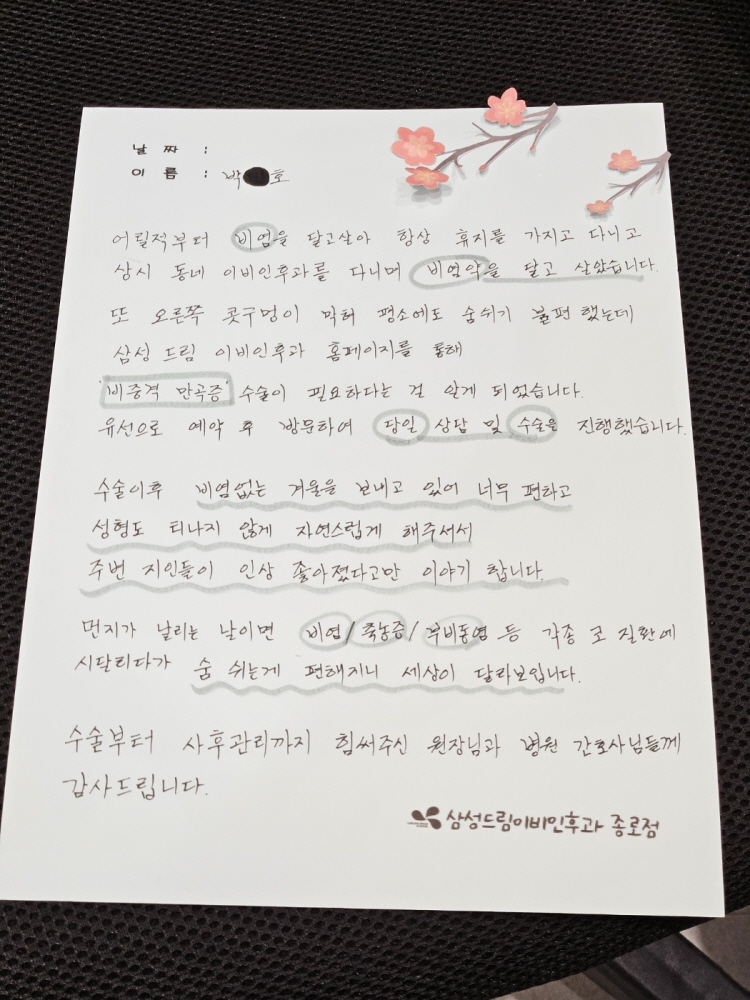 날 짜 :
이 름 : 박 호
어릴적부터 비염을 달고살아 항상 휴지를 가지고 다니고
상시 동네 이비인후과를 다니며 비염약을 달고 살았습니다.
또 오른쪽 콧구멍이 막혀 평소에도 숨쉬기 불편 했는데
삼성 드림 이비인후과 홈페이지를 통해
'비중격 만곡증' 수술이 필요하다는 걸 알게 되었습니다.
유선으로 예약 후 방문하여 당일 상담 및 수술을 진행했습니다.
수술이후 비염없는 겨울을 보내고 있어 너무 편하고
성형도 티나지 않게 자연스럽게 해주셔서
주변 지인들이 인상 좋아졌다고만 이야기 합니다.
먼지가 날리는 날이면 비염/축농증/부비동염 등 각종 코 질환에
시달리다가 숨 쉬는게 편해지니 세상이 달라보입니다.
수술부터 사후관리까지 힘써주신 원장님과 병원 간호사님들께
감사드립니다.
삼성드림이비인후과 종로점